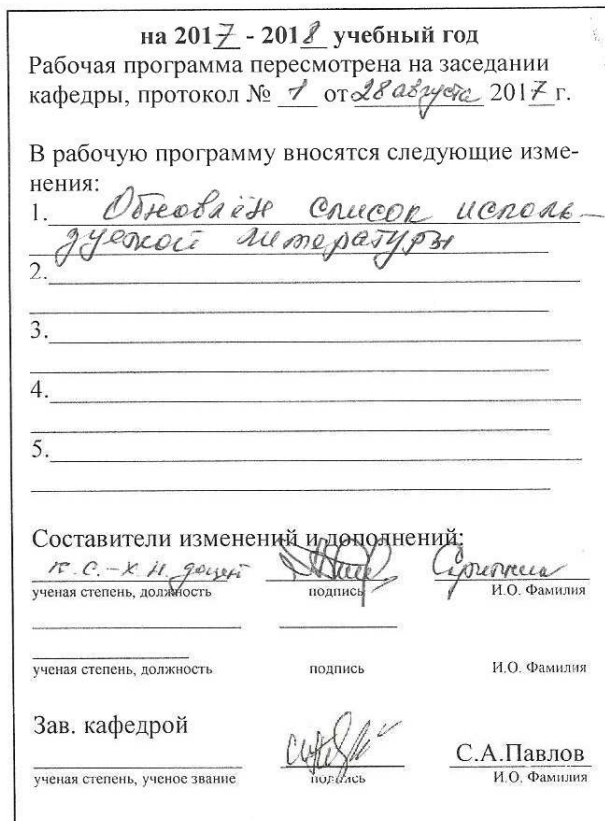 на 2017 - 2018 учебный год
Рабочая программа пересмотрена на заседании
кафедры, протокол № 1 от 28 августа 2017 г.
В рабочую программу вносятся следующие изме-
нения:
1. Обновлён список исполь-
зуемой литературы
2.
3.
4.
5.
Составители изменений и дополнений:
к.с.-х.н. доцент
ученая степень, должность подпись И.О. Фамилия
ученая степень, должность подпись И.О. Фамилия
Зав. кафедрой
С.А.Павлов
ученая степень, ученое звание подпись И.О. Фамилия